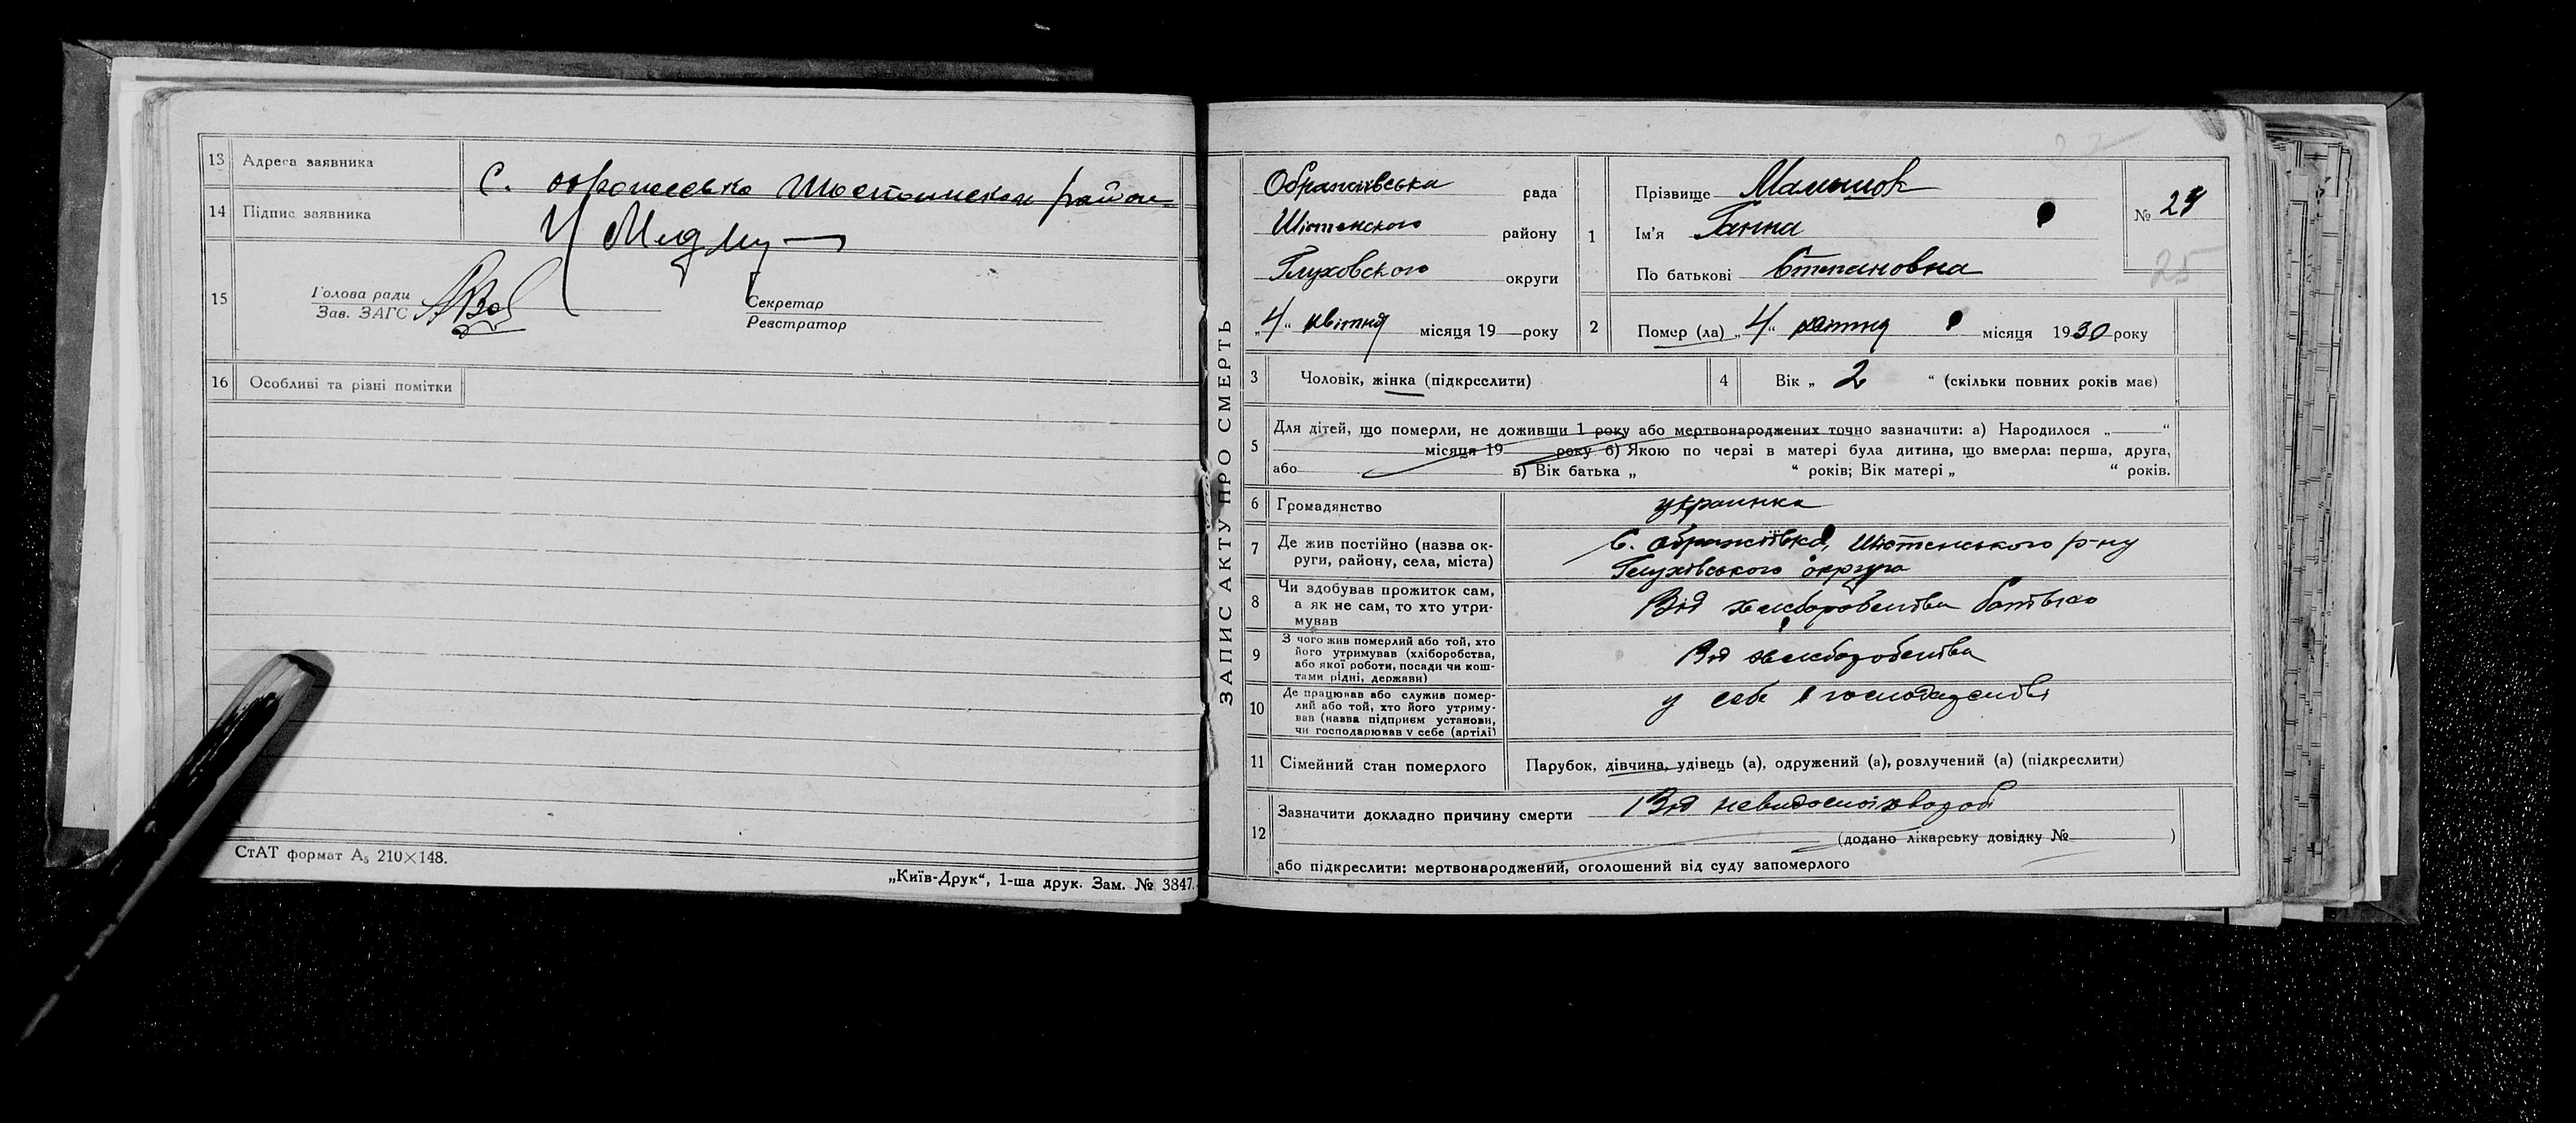 13 Адреса заявника
С. Шостенского район
14 Підпис заявника
15 Голова ради
Зав. ЗАГС
Секретар
Реєстратор
16 Особливі та різні помітки
СтАТ формат А₅ 210×148.
„Київ-Друк“, 1-ша друк. Зам. № 3847.
ЗАПИС АКТУ ПРО СМЕРТЬ
Ображіївська рада
Шостенского району
Глуховского округи
„4“ квітня місяця 19 року
1 Прізвище
Ім'я Ганна
По батькові Степановна
№ 24
25
2 Помер (ла) „4“ квітня місяця 1930 року
3 Чоловік, жінка (підкреслити)
4 Вік „ 2 “ (скільки повних років має)
5 Для дітей, що померли, не доживши 1 року або мертвонароджених точно зазначити: а) Народилося „ “
місяця 19 року б) Якою по черзі в матері була дитина, що вмерла: перша, друга,
або в) Вік батька „ “ років; Вік матері „ “ років.
6 Громадянство украинка
7 Де жив постійно (назва ок-
руги, району, села, міста)
С. Ображіївка, Шостенського р-ну
Глухівського округа
8 Чи здобував прожиток сам,
а як не сам, то хто утри-
мував
Від хлеборобства батька
9 З чого жив померлий або той, хто
його утримував (хліборобства,
або якої роботи, посади чи кош-
тами рідні, держави)
Від хлеборобства
10 Де працював або служив помер-
лий або той, хто його утриму-
вав (назва підприєм установи,
чи господарював у себе (артілі)
у себе в господарстві
11 Сімейний стан померлого
Парубок, дівчина, удівець (а), одружений (а), розлучений (а) (підкреслити)
12 Зазначити докладно причину смерти Від
(додано лікарську довідку № )
або підкреслити: мертвонароджений, оголошений від суду запомерлого